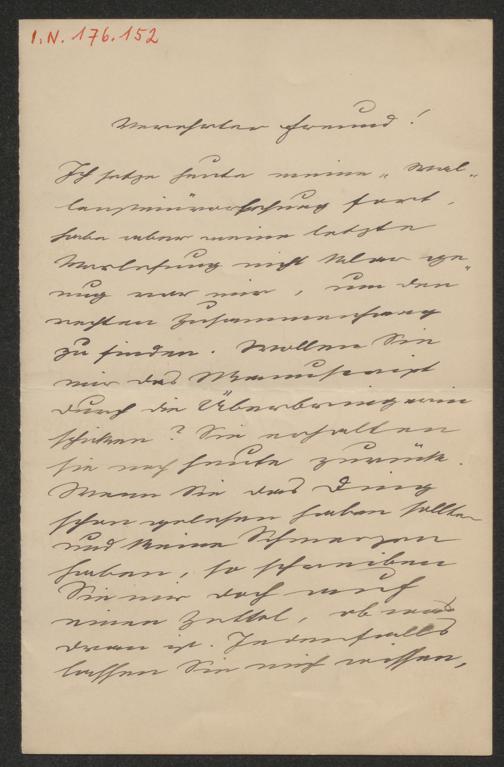 I.N. 176.152
Verehrter Freund!
Ich setze heute meine „Wal-
lensteinvorlesung fort,
habe aber meine letzte
Vorlesung nicht klar ge-
nug vor mir, um den
rechten Zusammenhang
zu finden. Wollen Sie
mir das Manuscript
durch die Überbringerin
schicken? Sie erhalten
sie noch heute zurück.
Wenn Sie das Ding
schon gelesen haben sollten
und keine Schmerzen
haben, so schreiben
Sie mir doch auch
einen Zettel, ob was
dran ist. Jedenfalls
lassen Sie mich wissen,